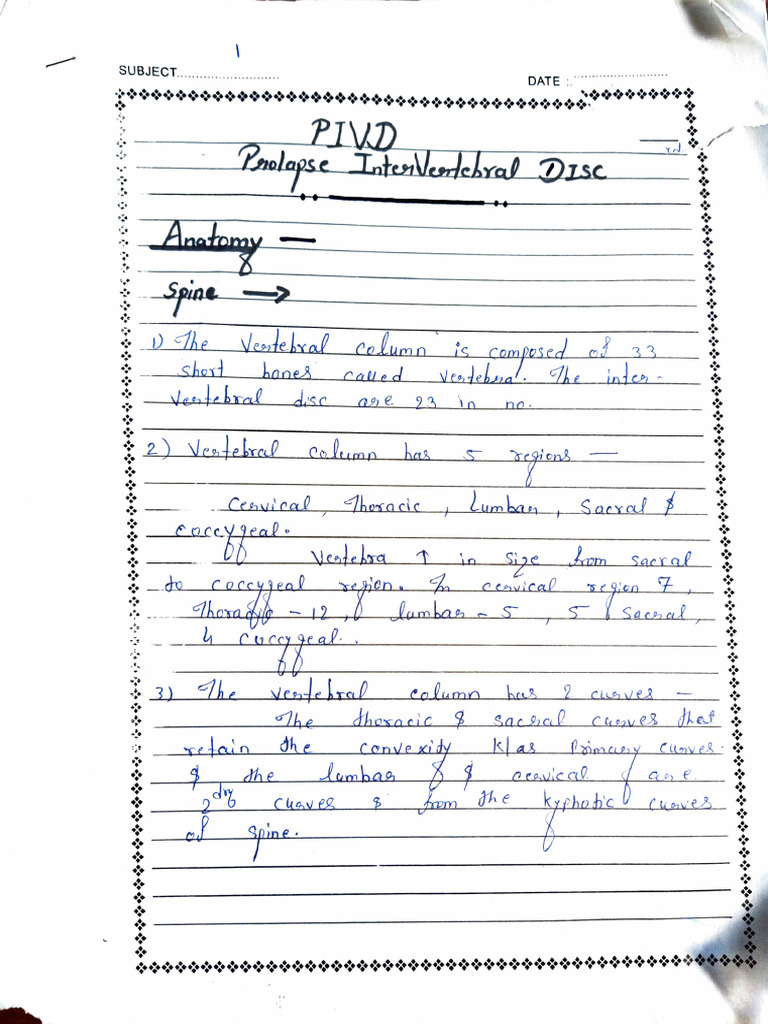 1
SUBJECT............................
DATE :.........................
PIVD
rd
Prolapse InterVertebral Disc
Anatomy —
Spine →
1) The Vertebral column is composed of 33
short bones called vertebra. The inter-
vertebral disc are 23 in no.
2) Vertebral column has 5 regions —
Cervical, Thoracic, Lumbar, Sacral &
coccygeal.
Vertebra ↑ in size from sacral
to coccygeal region. In cervical region 7,
Thoracic - 12, lumbar - 5, 5 Sacral,
4 coccygeal.
3) The vertebral column has 2 curves —
The thoracic & sacral curves that
retain the convexity k/as Primary curves.
& the lumbar & cervical are
2dry curves & from the kyphotic curves
of spine.